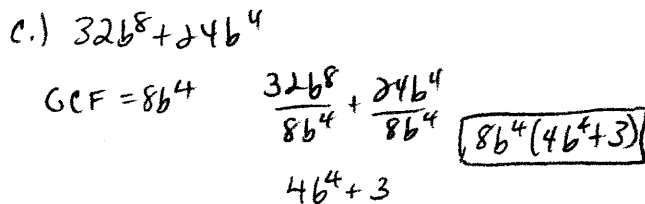 c.) 32b⁸+24b⁴
GCF = 8b⁴ 32b⁸/8b⁴ + 24b⁴/8b⁴ 8b⁴(4b⁴+3)
4b⁴+3